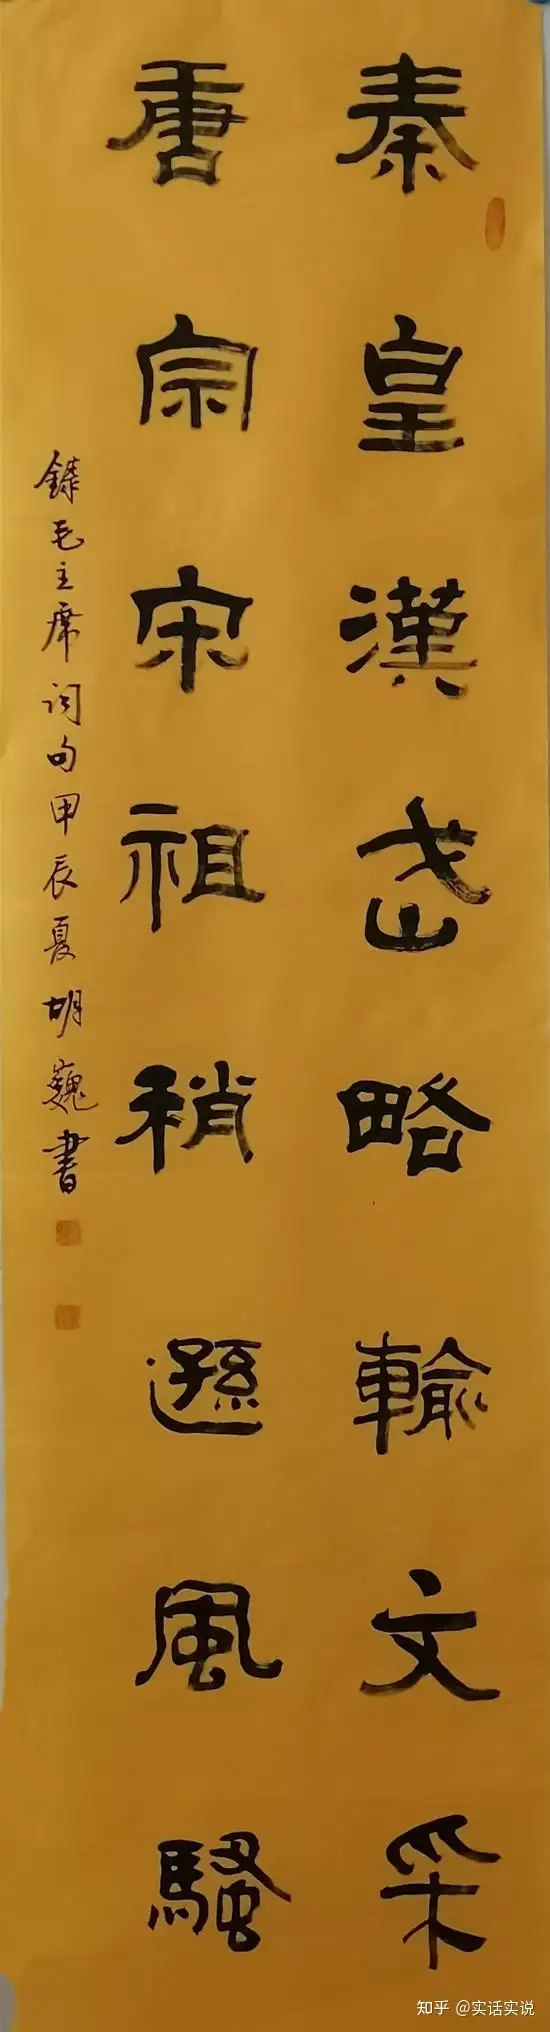 秦皇漢武略輸文采
唐宗宋祖稍遜風騷
錄毛主席詞句甲辰夏胡巍書
知乎 @实话实说